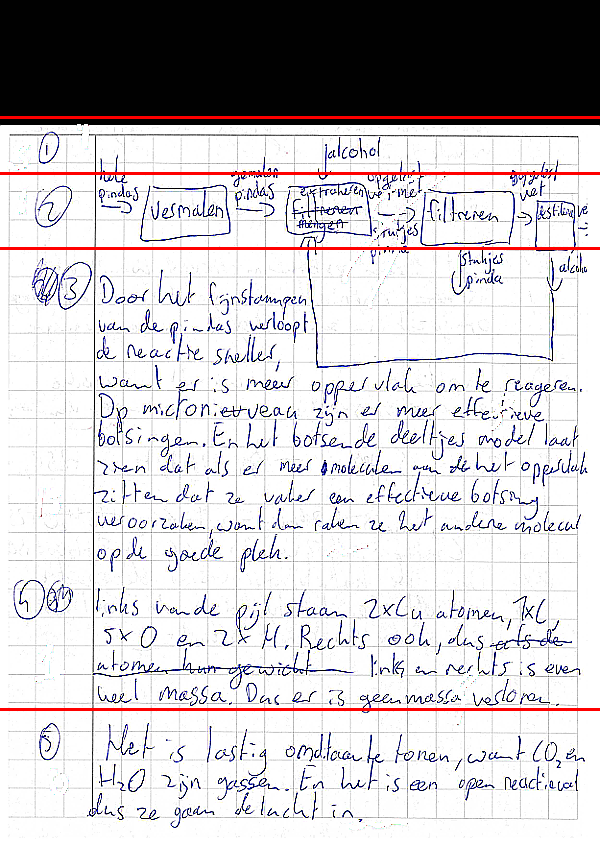 1
alcohol
hele pindas
gemalen pindas
opgelost vet met stukjes pinda
opgelost vet
2
Vermalen
extraheren
filtreren
mengen
filtreren
destilleren
stukjes pinda
alcoho
3 Door het fijnstampen
van de pindas verloopt
de reactie sneller,
want er is meer oppervlak om te reageren.
Op micronieuveau zijn er meer effectieve
botsingen. En het botsende deeltjes model laat
zien dat als er meer moleculen aan de het oppervlak
zitten dat ze vaker een effectieve botsing
veroorzaken, want dan raken ze het andere molecuul
op de goede plek.
4 links van de pijl staan 2xCu atomen, 1xC,
5xO en 2xH. Rechts ook, dus als de
atomen hun gewicht links en rechts is even
veel massa. Dus er is geen massa verloren.
5 Het is lastig om dit aan te tonen, want CO₂ en
H₂O zijn gassen. En het is een open reactievat
dus ze gaan de lucht in.